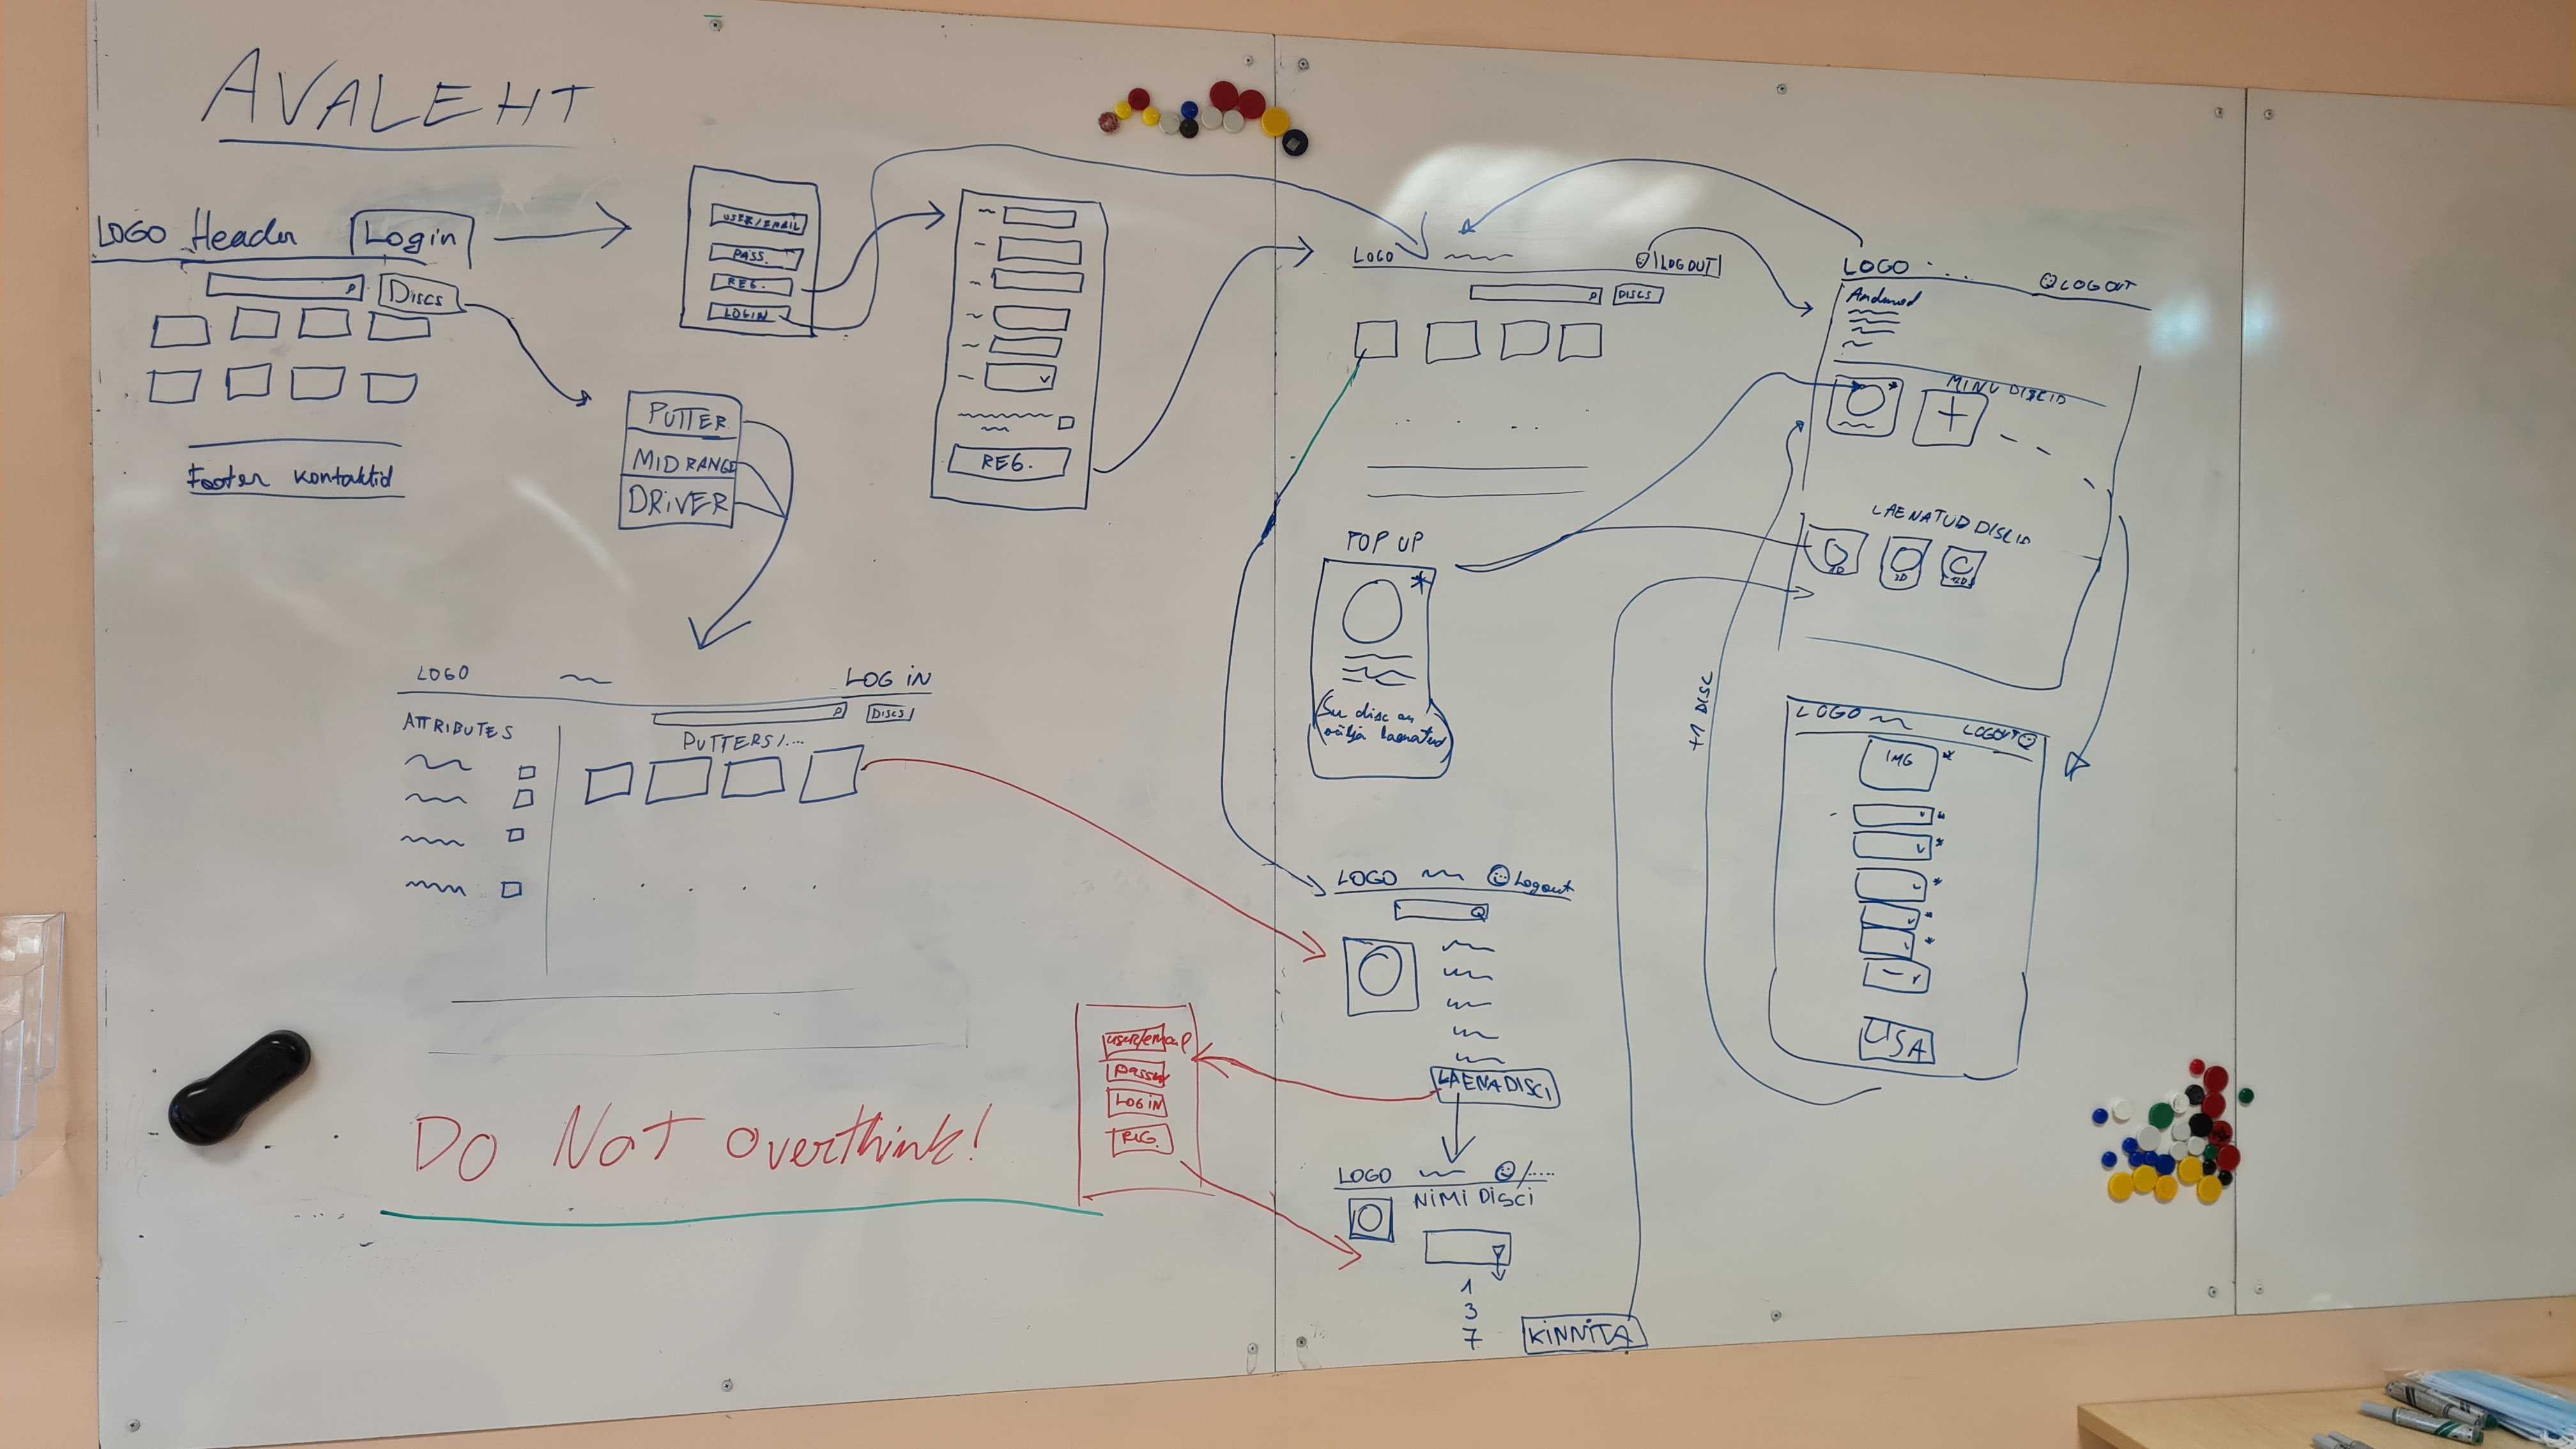 AVALEHT
LOGO Header Login
Discs
Footer kontaktid
USER/EMAIL
PASS.
REG.
LOGIN
PUTTER
MIDRANGE
DRIVER
REG.
LOGO LOG IN
DISCS
ATTRIBUTES
PUTTERS/....
Do Not overthink!
user/email
LOGIN
REG.
LOGO LOGOUT
DISCS
POP UP
Su disc on
välja laenatud
LOGO Logout
LAENA DISCI
LOGO
NIMI DISCI
1
3
7
KINNITA
LOGO ... LOGOUT
Andmed
MINU DISCID
+
LAENATUD DISCID
+1 DISC
LOGO LOGOUT
IMG
LISA